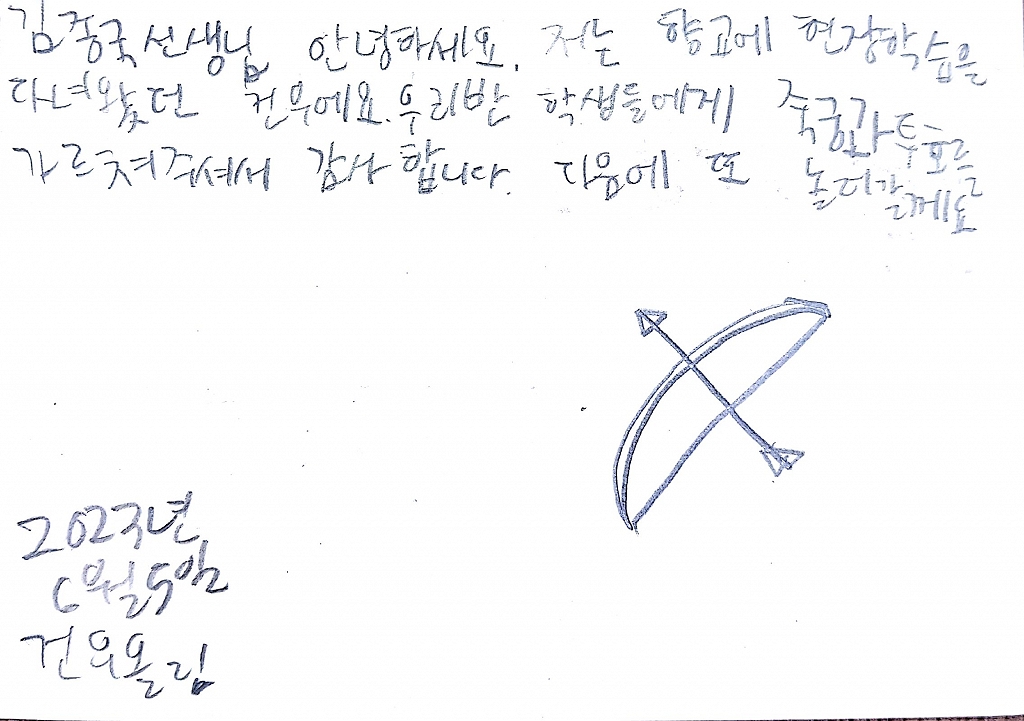 김종국선생님 안녕하세요. 저는 향교에 현장학습을
다녀왔던 건우에요. 우리반 학생들에게 죽궁과투호를
가르쳐주셔서 감사합니다. 다음에 또 놀러갈께요
2023년
6월5일
건우올림